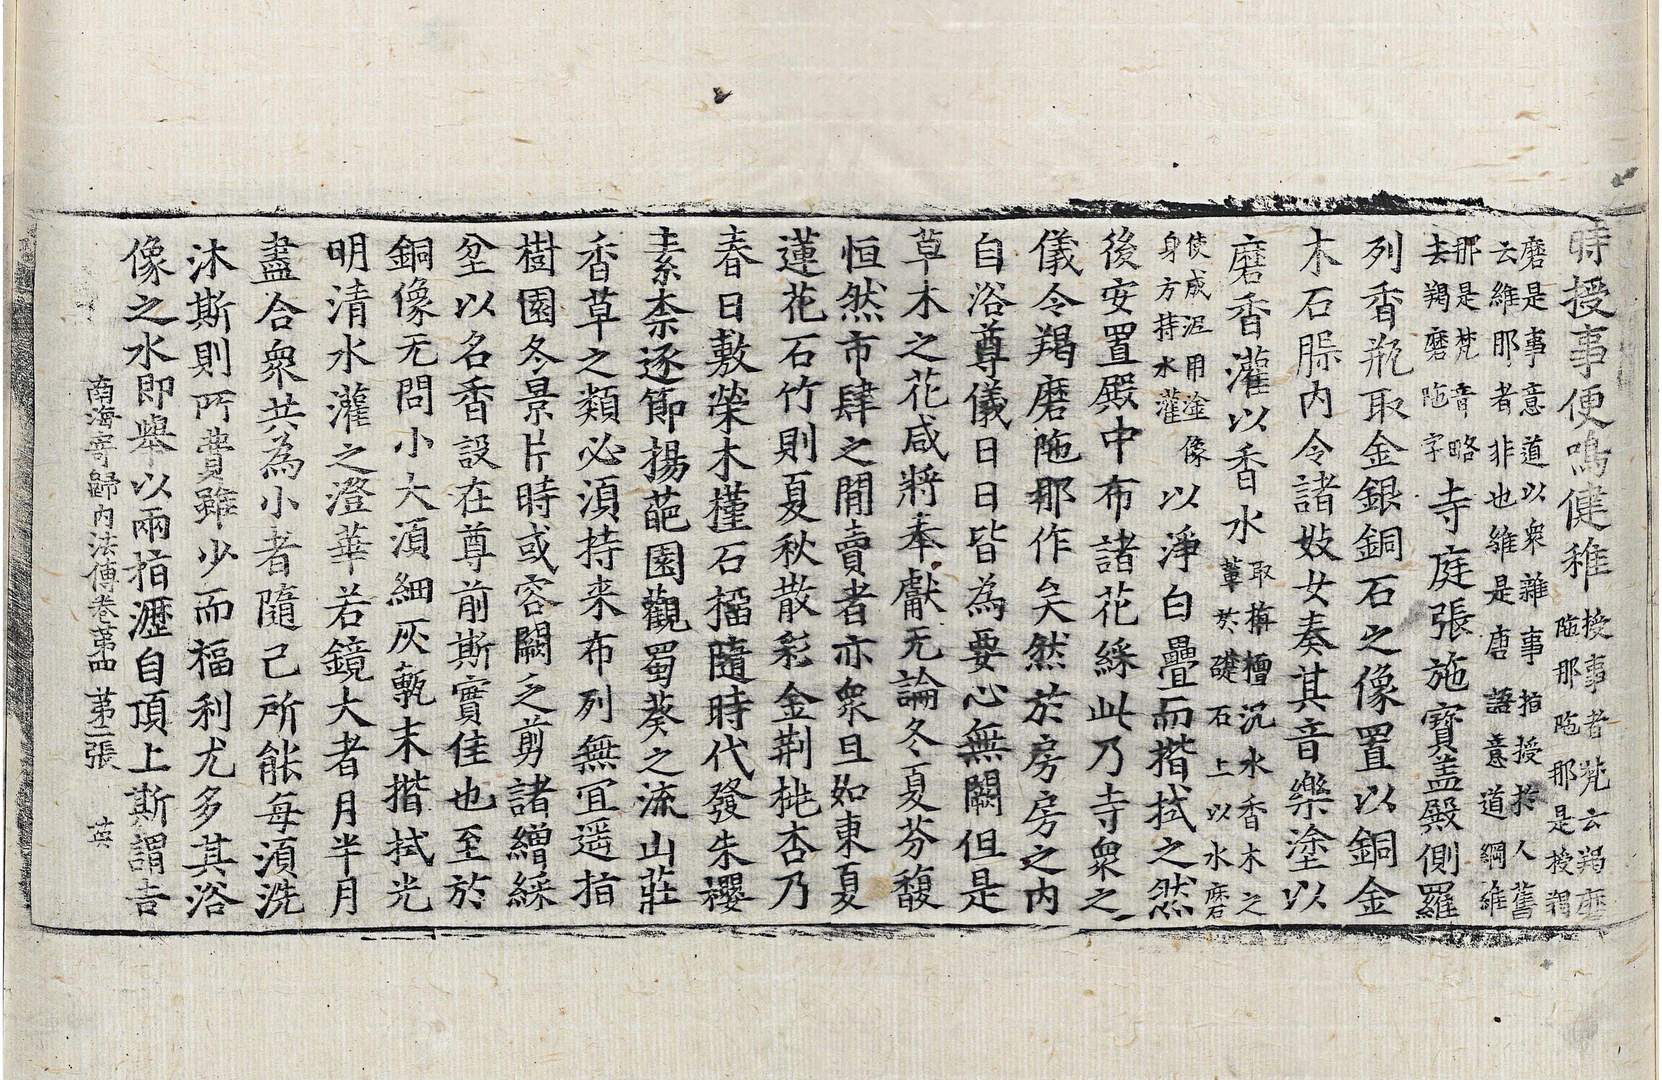 時授事便鳴健稚授事者梵云羯磨陁那陁那是授羯
磨是事意道以衆雜事指授於人舊云維那者非也維是唐語意道綱維
那是梵音略去羯磨陁字寺庭張施寳盖殿側羅
列香瓶取金銀銅石之像置以銅金
木石槃内令諸妓女奏其音樂塗以
磨香灌以香水取栴檀沉水香木之輩於礎石上以水磨
使成泥用塗像身方持水灌以淨白疊而揩拭之然
後安置殿中布諸花綵此乃寺衆之
儀令羯磨陁那作矣然於房房之内
自浴尊儀日日皆為要心無闕但是
草木之花咸將奉獻无論冬夏芬馥
恒然市肆之間賣者亦衆且如東夏
蓮花石竹則夏秋散彩金荆桃杏乃
春日敷榮木槿石榴隨時代發朱櫻
素柰逐節揚葩園觀蜀葵之流山莊
香草之類必湏持来布列無冝遥指
樹園冬景片時或容闕乏剪諸繒綵
坌以名香設在尊前斯實佳也至於
銅像无問小大湏細灰甎末揩拭光
明清水灌之澄華若鏡大者月半月
盡合衆共為小者隨己所能每湏洗
沐斯則所費雖少而福利尤多其浴
像之水即舉以兩指瀝自頂上斯謂吉
南海寄歸内法傳卷第四 第二張 英